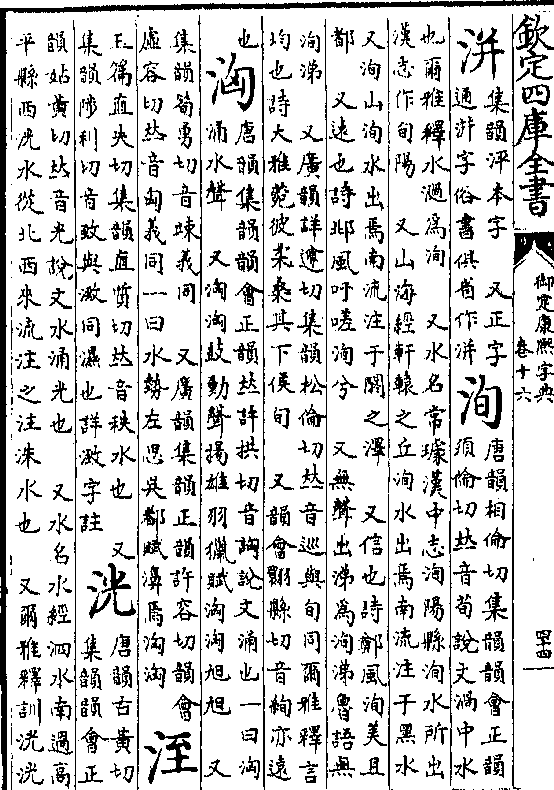 欽定四庫全書
御定康熙字典
卷十六
洴
集韻泙本字　又正字
通字俗書俱省作洴
洵
唐韻相倫切集韻韻會正韻
須倫切𠀤音荀說文渦中水
也爾雅釋水過爲洵　又水名常璩漢中志洵陽縣洵水所出
漢志作旬陽　又山海經軒轅之丘洵水出焉南流注于黑水
又洵山洵水出焉南流注于閼之澤　又信也詩鄭風洵美且
都　又遠也詩邶風吁嗟洵兮　又無聲出涕爲洵涕魯語無
洵涕　又廣韻詳遵切集韻松倫切𠀤音巡與旬同爾雅釋言
均也詩大雅菀彼桑柔其下侯旬　又韻會翾縣切音絢亦遠
也
洶
唐韻集韻韻會正韻𠀤許拱切音詾說文涌也一曰洶
涌水聲　又洶洶鼓動聲揚雄羽獵賦洶洶旭旭　又
集韻筍勇切音竦義同　又廣韻集韻正韻許容切韻會
虛容切𠀤音匈義同一曰水勢左思吳都賦濞焉洶洶
洷
玉篇直失切集韻直質切𠀤音秩水也　又
集韻陟利切音致與㴛同濕也詳㴛字註
洸
唐韻古黃切
集韻韻會正
韻姑黃切𠀤音光說文水涌光也　又水名水經泗水南過高
平縣西洸水從北西來流注之注洙水也　又爾雅釋訓洸洸